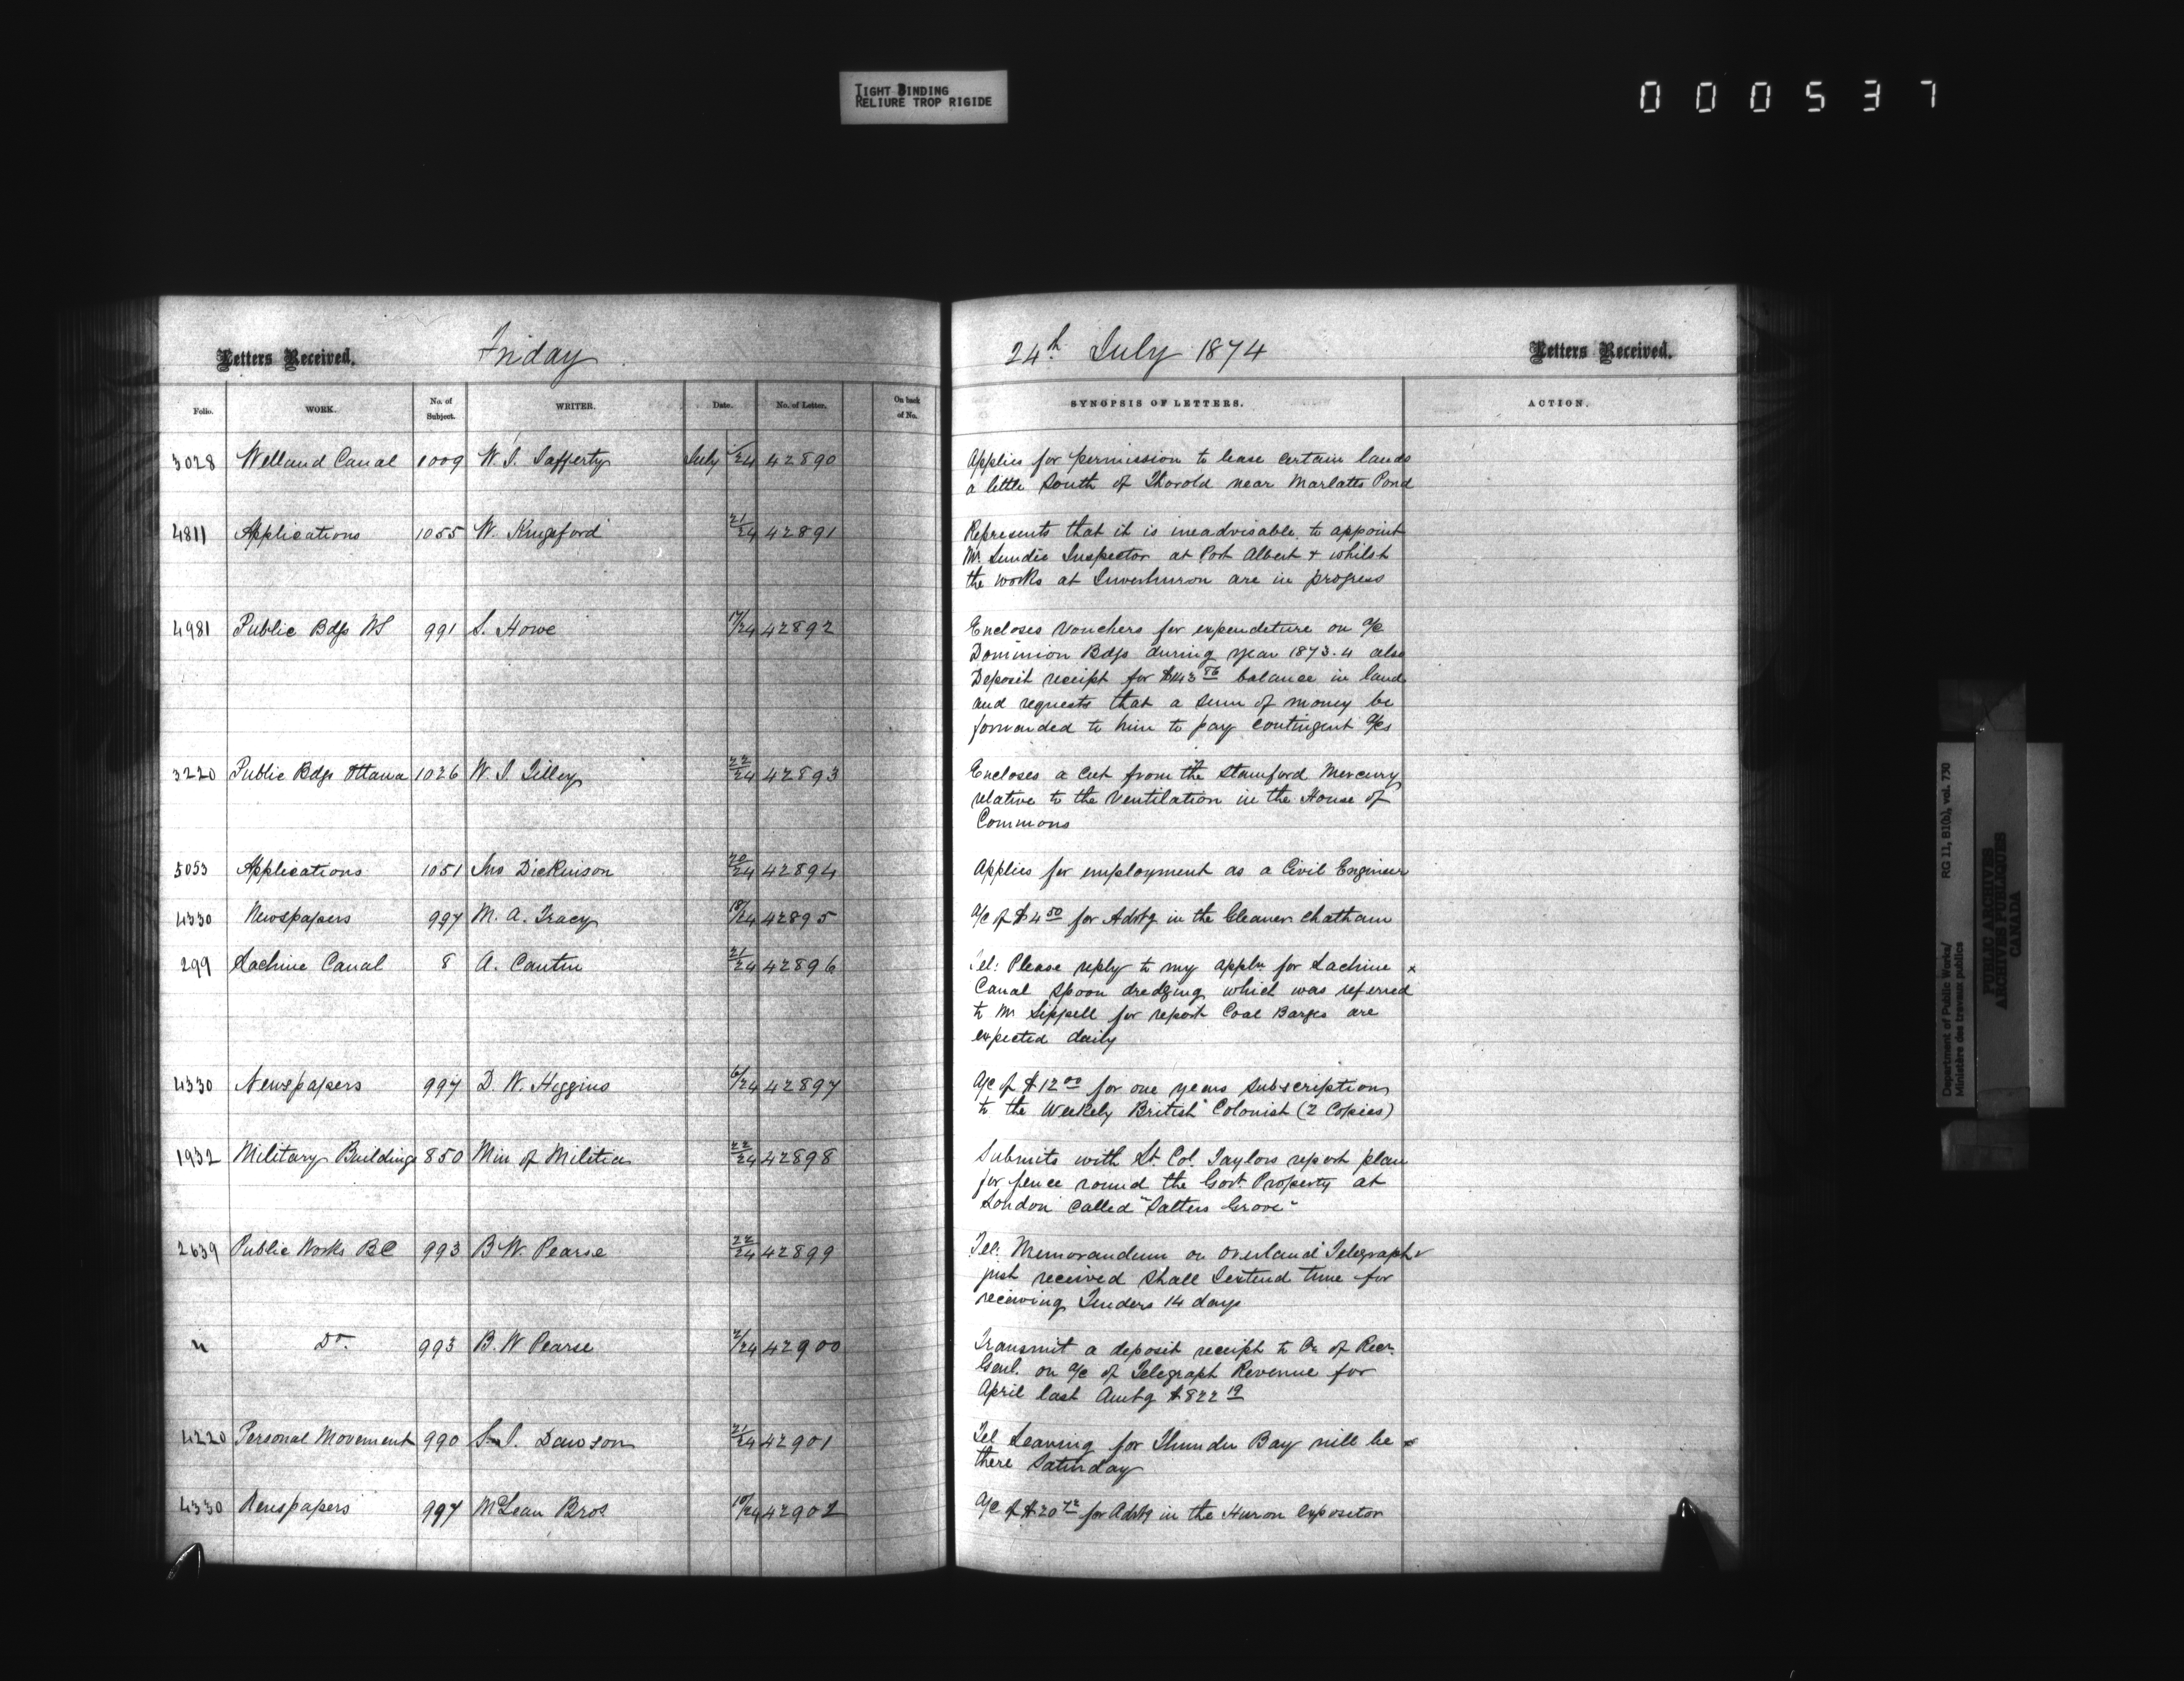 TIGHT BINDING
RELIURE TROP RIGIDE
000537
Letters Received. Friday 24th July 1874 Letters Received.
Folio. WORK. No. of Subject. WRITER. Date. No. of Letter. On back of No. SYNOPSIS OF LETTERS. ACTION.
3028 Welland Canal 1009 W. J. Lafferty July /24 42890 Applies for permission to lease certain lands
a little South of Thorold near Marlatts Pond
4811 Applications 1055 W. Kingsford 21/24 42891 Represents that it is inadvisable to appoint
Mr Lundie Inspector at Port Albert & whilst
the works at Inverhuron are in progress
4981 Public Bdgs NS 991 S. Howe 17/24 42892 Encloses Vouchers for expenditure on a/c
Dominion Bdgs during year 1873.4 also
Deposit receipt for $143 86 balance in hand
and requests that a sum of money be
forwarded to him to pay contingent a/cs
3220 Public Bdgs Ottawa 1026 W. J. Tilley 22/24 42893 Encloses a cut from the Stamford Mercury
relative to the Ventilation in the House of
Commons
5053 Applications 1051 Jno Dickinson 20/24 42894 Applies for employment as a Civil Engineer
4330 Newspapers 997 M. A. Tracy 18/24 42895 a/c of $4 50 for Advtg in the Gleaner Chatham
299 Lachine Canal 8 A. Cantin 21/24 42896 Tel: Please reply to my appln for Lachine x
Canal Spoon dredging which was referred
to Mr Sippell for report Coal Barges are
expected daily
4330 Newspapers 997 D. W. Higgins 6/24 42897 a/c of $12 00 for one years Subscription
to the Weekely British Colonist (2 Copies)
1932 Military Buildings 850 Min of Militia 22/24 42898 Submits with Lt. Col. Taylors report plan
for fence round the Govt. Property at
London called "Salters Grove"
2639 Public Works BC 993 B W. Pearse 22/24 42899 Tel: Memorandum on overland Telegraph
just received Shall I extend time for
receiving Tenders 14 days
" Do. 993 B. W Pearse 2/24 42900 Transmit a deposit receipt to Cr. of Recr.
Genl. on a/c of Telegraph Revenue for
April last Amtg $822 19
4220 Personal Movement 990 S. J. Dawson 21/24 42901 Tel Leaving for Thunder Bay will be x
there Saturday
4330 Newspapers 997 McLean Bros 18/24 42902 a/c of $20 72 for Advtg in the Huron Expositor
Department of Public Works/ RG 11, B1(b), vol. 730
Ministère des travaux publics
PUBLIC ARCHIVES
ARCHIVES PUBLIQUES
CANADA